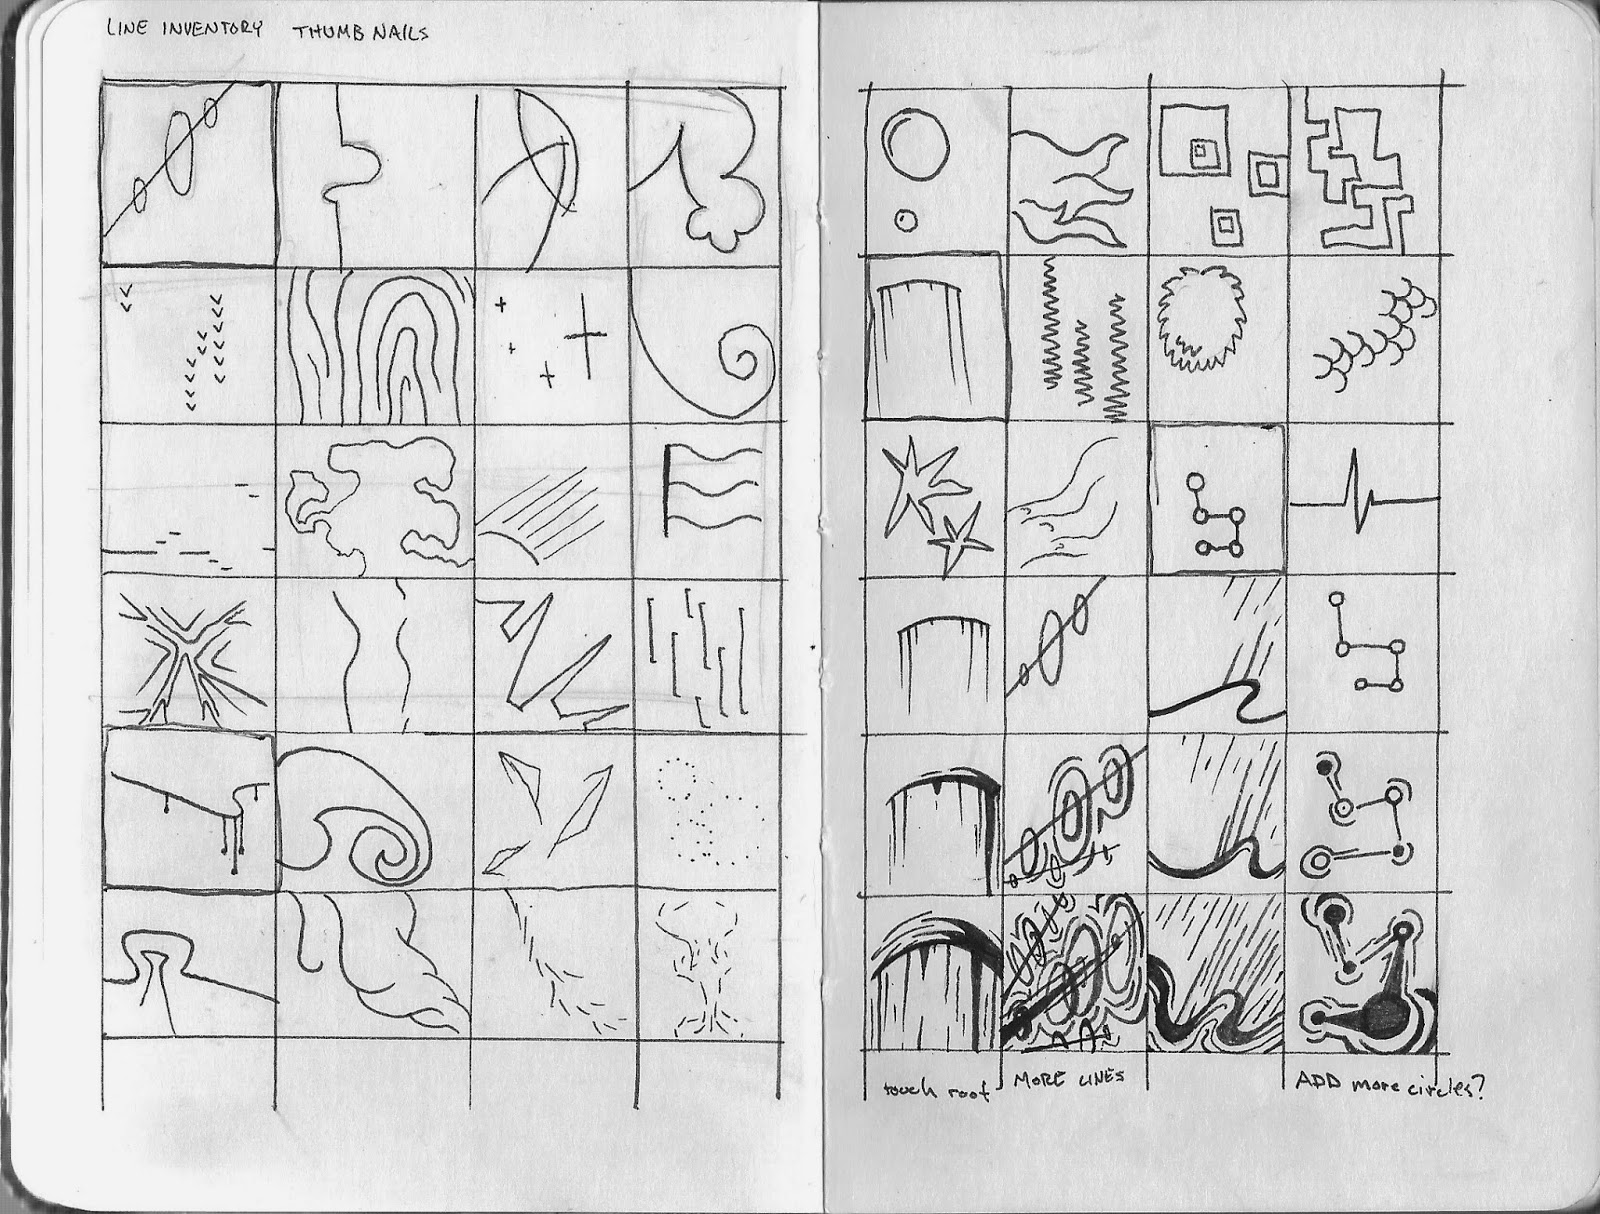 LINE INVENTORY THUMB NAILS
touch roof
MORE LINES
ADD more circles?